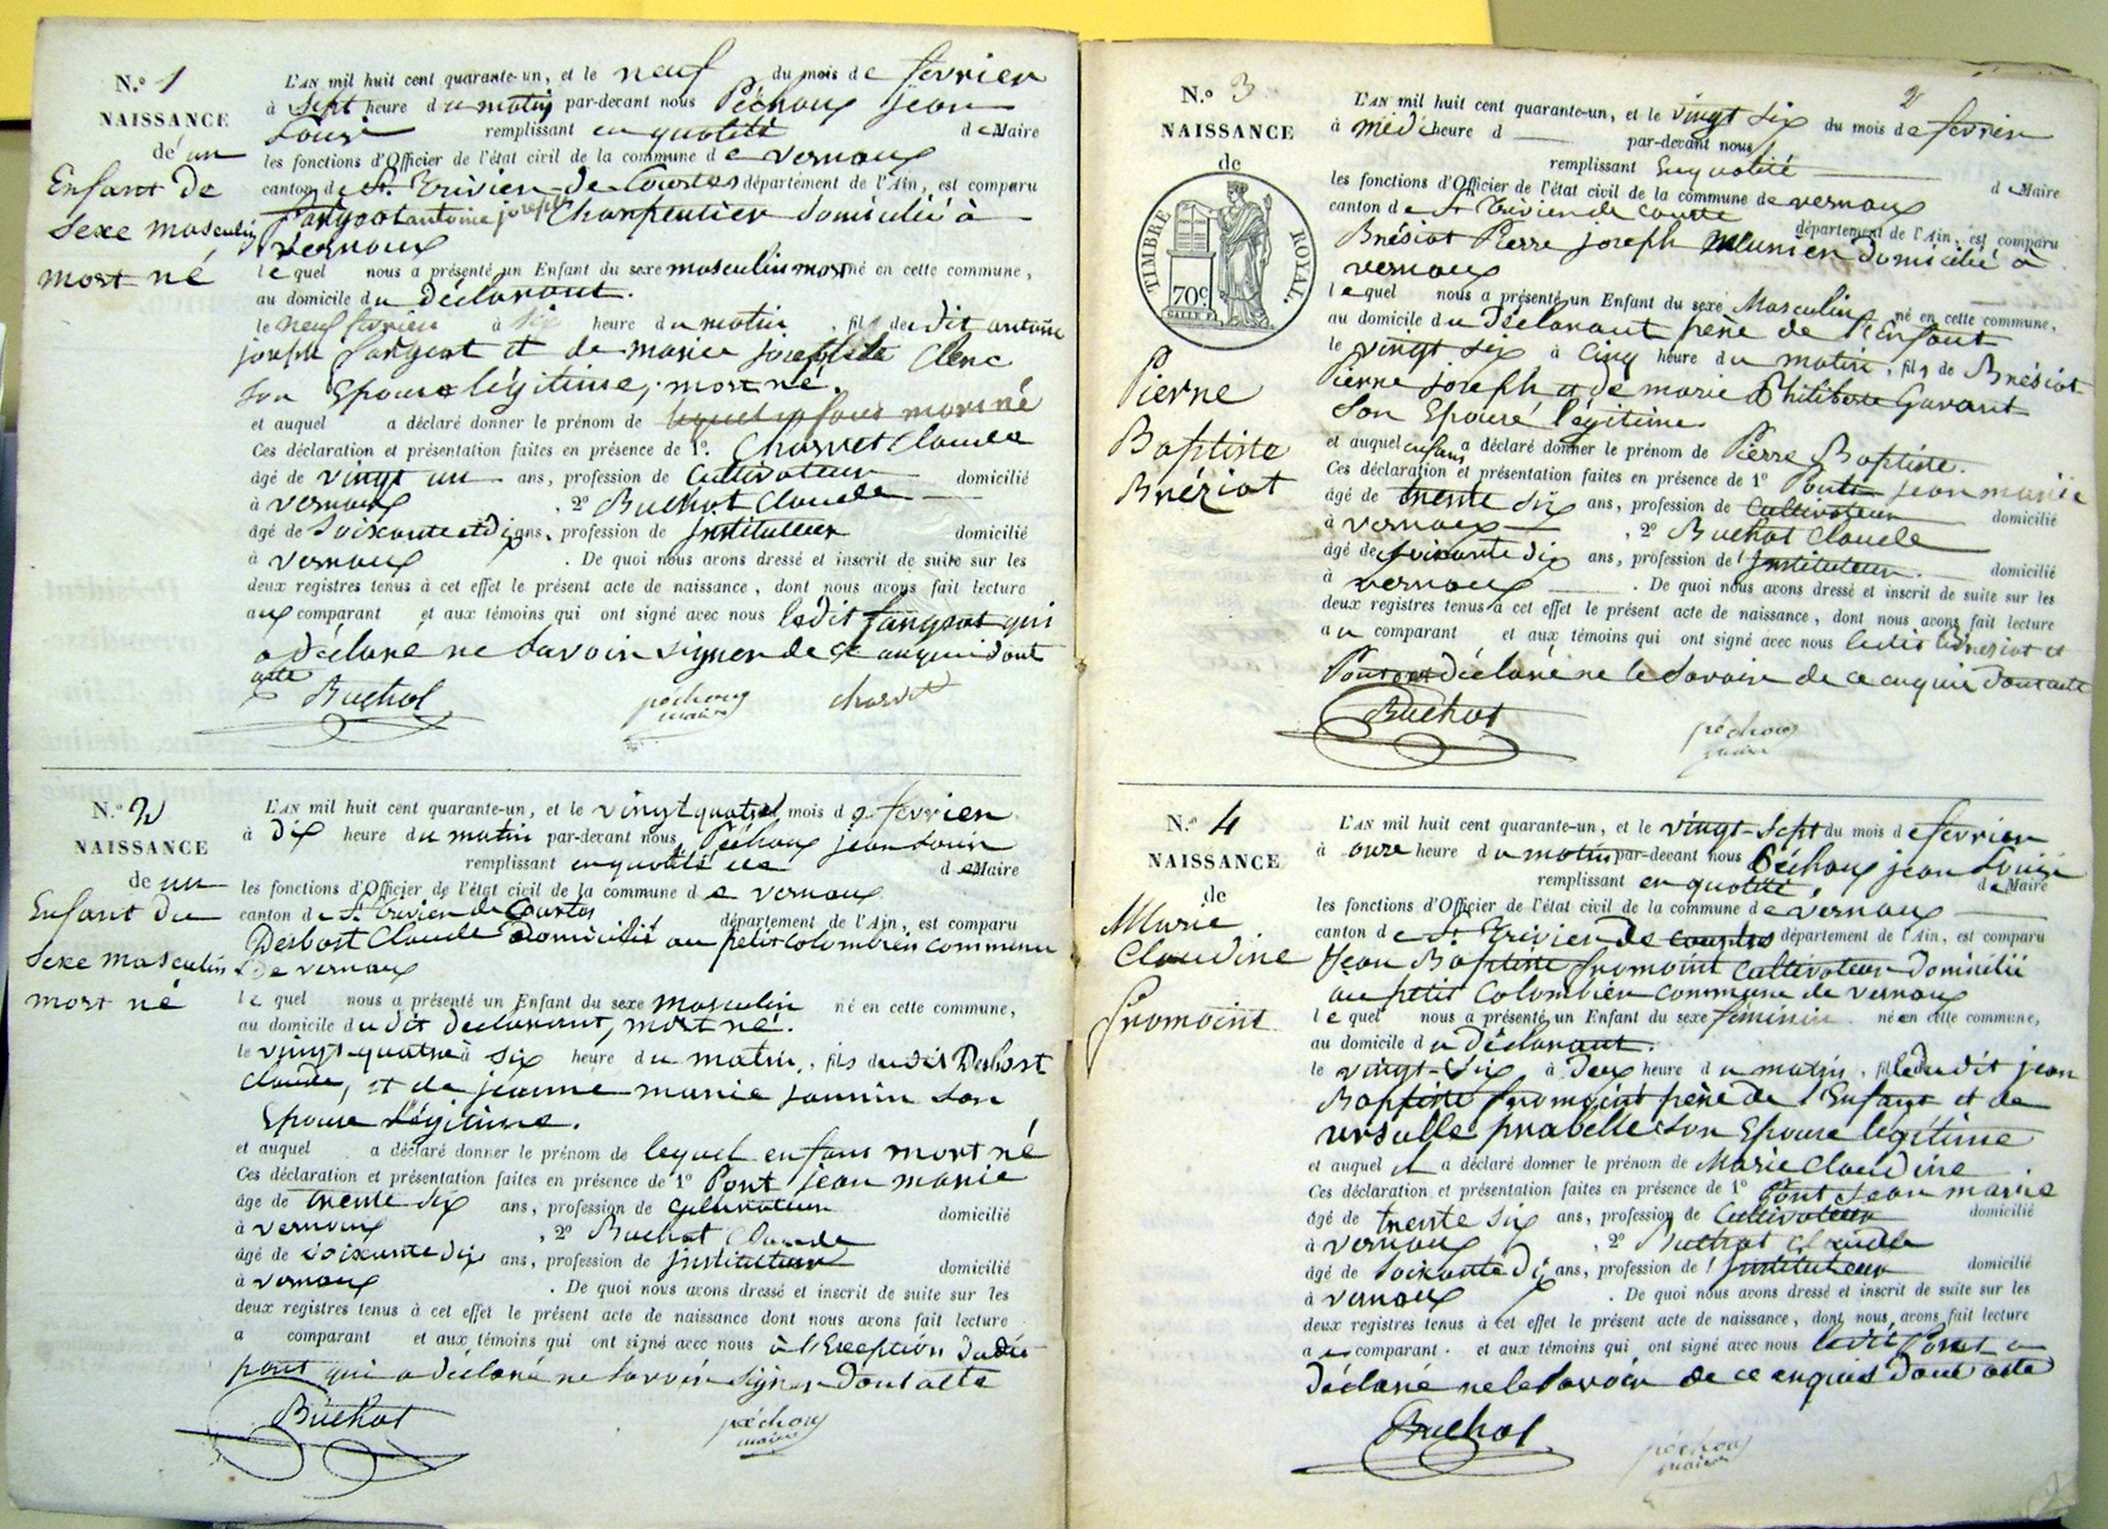 N.º 1
NAISSANCE
de un
Enfant de
sexe masculin
mort né
L'AN mil huit cent quarante-un, et le neuf du mois de fevrier
à sept heure du matin par-devant nous Péchoux jean
Louis remplissant en qualité de Maire
les fonctions d'Officier de l'état civil de la commune de vernoux
canton de St. Trivier-de-Courtes département de l'Ain, est comparu
antoine joseph Charpentier domicilié à
vernoux
lequel nous a présenté un Enfant du sexe masculin mort né en cette commune,
au domicile du déclarant.
le neuf fevrier à six heure du matin, fils dudit antoine
joseph et de marie Clerc
son Epouse légitime, mort né.
et auquel a déclaré donner le prénom de lequel enfant mort né
Ces déclaration et présentation faites en présence de 1º. Charvet Claude
âgé de vingt un ans, profession de Cultivateur domicilié
à vernoux , 2º Buchot Claude
âgé de soixante et dix ans, profession de Instituteur domicilié
à vernoux . De quoi nous avons dressé et inscrit de suite sur les
deux registres tenus à cet effet le présent acte de naissance, dont nous avons fait lecture
aux comparant et aux témoins qui ont signé avec nous ledit qui
a déclaré ne savoir signer de ce enquis dont
acte
Buchot péchoux charvet
maire
N.º 2
NAISSANCE
de un
Enfant du
sexe masculin
mort né
L'AN mil huit cent quarante-un, et le vingt quatre mois de fevrier
à dix heure du matin par-devant nous, Péchoux jean Louis
remplissant en qualité de Maire
les fonctions d'Officier de l'état civil de la commune de vernoux
canton de St. Trivier de Courtes département de l'Ain, est comparu
Desbost Claude domicilié au petit Colombier commune
de vernoux
lequel nous a présenté un Enfant du sexe masculin né en cette commune,
au domicile dudit declarant, mort né.
le vingt-quatre à six heure du matin, fils dudit Desbost
Claude, et de jeanne marie son
Epouse Légitime.
et auquel a déclaré donner le prénom de lequel enfant mort né
Ces déclaration et présentation faites en présence de 1º Pont jean marie
âgé de trente six ans, profession de Cultivateur domicilié
à vernoux , 2º Buchot Claude
âgé de soixante dix ans, profession de Instituteur domicilié
à vernoux . De quoi nous avons dressé et inscrit de suite sur les
deux registres tenus à cet effet le présent acte de naissance dont nous avons fait lecture
a comparant et aux témoins qui ont signé avec nous à l'Exception dudit
pont qui a déclaré ne savoir signer dont acte
Buchot péchoux
maire
2
N.º 3
NAISSANCE
de
TIMBRE ROYAL.
70c
Pierre
Baptiste
Bréziat
L'AN mil huit cent quarante-un, et le vingt six du mois de fevrier
à midi heure d par-devant nous
remplissant En qualité de Maire
les fonctions d'Officier de l'état civil de la commune de vernoux
canton de St Trivier de courte département de l'Ain, est comparu
Brésiat Pierre joseph Meunier domicilié à
vernoux
lequel nous a présenté un Enfant du sexe Masculin né en cette commune,
au domicile du Déclarant père de l'Enfant
le vingt six à cinq heure du matin, fils de Brésiat
Pierre joseph et de marie Philiberte Gavant
son Epouse légitime
et auquel enfant a déclaré donner le prénom de Pierre Baptiste.
Ces déclaration et présentation faites en présence de 1º Pont jean marie
âgé de trente six ans, profession de Cultivateur domicilié
à vernoux , 2º Buchot Claude
âgé de soixante dix ans, profession de Instituteur. domicilié
à vernoux . De quoi nous avons dressé et inscrit de suite sur les
deux registres tenus à cet effet le présent acte de naissance, dont nous avons fait lecture
au comparant et aux témoins qui ont signé avec nous ledit Bresiat et
Pont ont déclaré ne le savoir de ce enquis dont acte
Buchot péchoux
maire
N.º 4
NAISSANCE
de
Marie
Claudine
fromoint
L'AN mil huit cent quarante-un, et le vingt-sept du mois de fevrier
à onze heure du matin par-devant nous Péchoux jean Louis
remplissant en qualité, de Maire
les fonctions d'Officier de l'état civil de la commune de vernoux
canton de St. Trivier de courtes département de l'Ain, est comparu
Jean Baptiste fromoint Cultivateur domicilié
au petit Colombier commune de vernoux
lequel nous a présenté un Enfant du sexe féminin né en cette commune,
au domicile du déclarant.
le vingt-six à deux heure du matin, fille dudit jean
Baptiste fromoint père de l'Enfant et de
ursulle prabelle son Epouse légitime
et auquel il a déclaré donner le prénom de Marie Claudine .
Ces déclaration et présentation faites en présence de 1º Pont Jean marie
âgé de trente six ans, profession de Cultivateur domicilié
à vernoux , 2º Buchot Claude
âgé de soixante dix ans, profession de Instituteur domicilié
à vernoux . De quoi nous avons dressé et inscrit de suite sur les
deux registres tenus à cet effet le présent acte de naissance, dont nous avons fait lecture
au comparant. et aux témoins qui ont signé avec nous ledit Pont a
déclaré ne le savoir de ce enquis dont acte
Buchot péchoux
maire